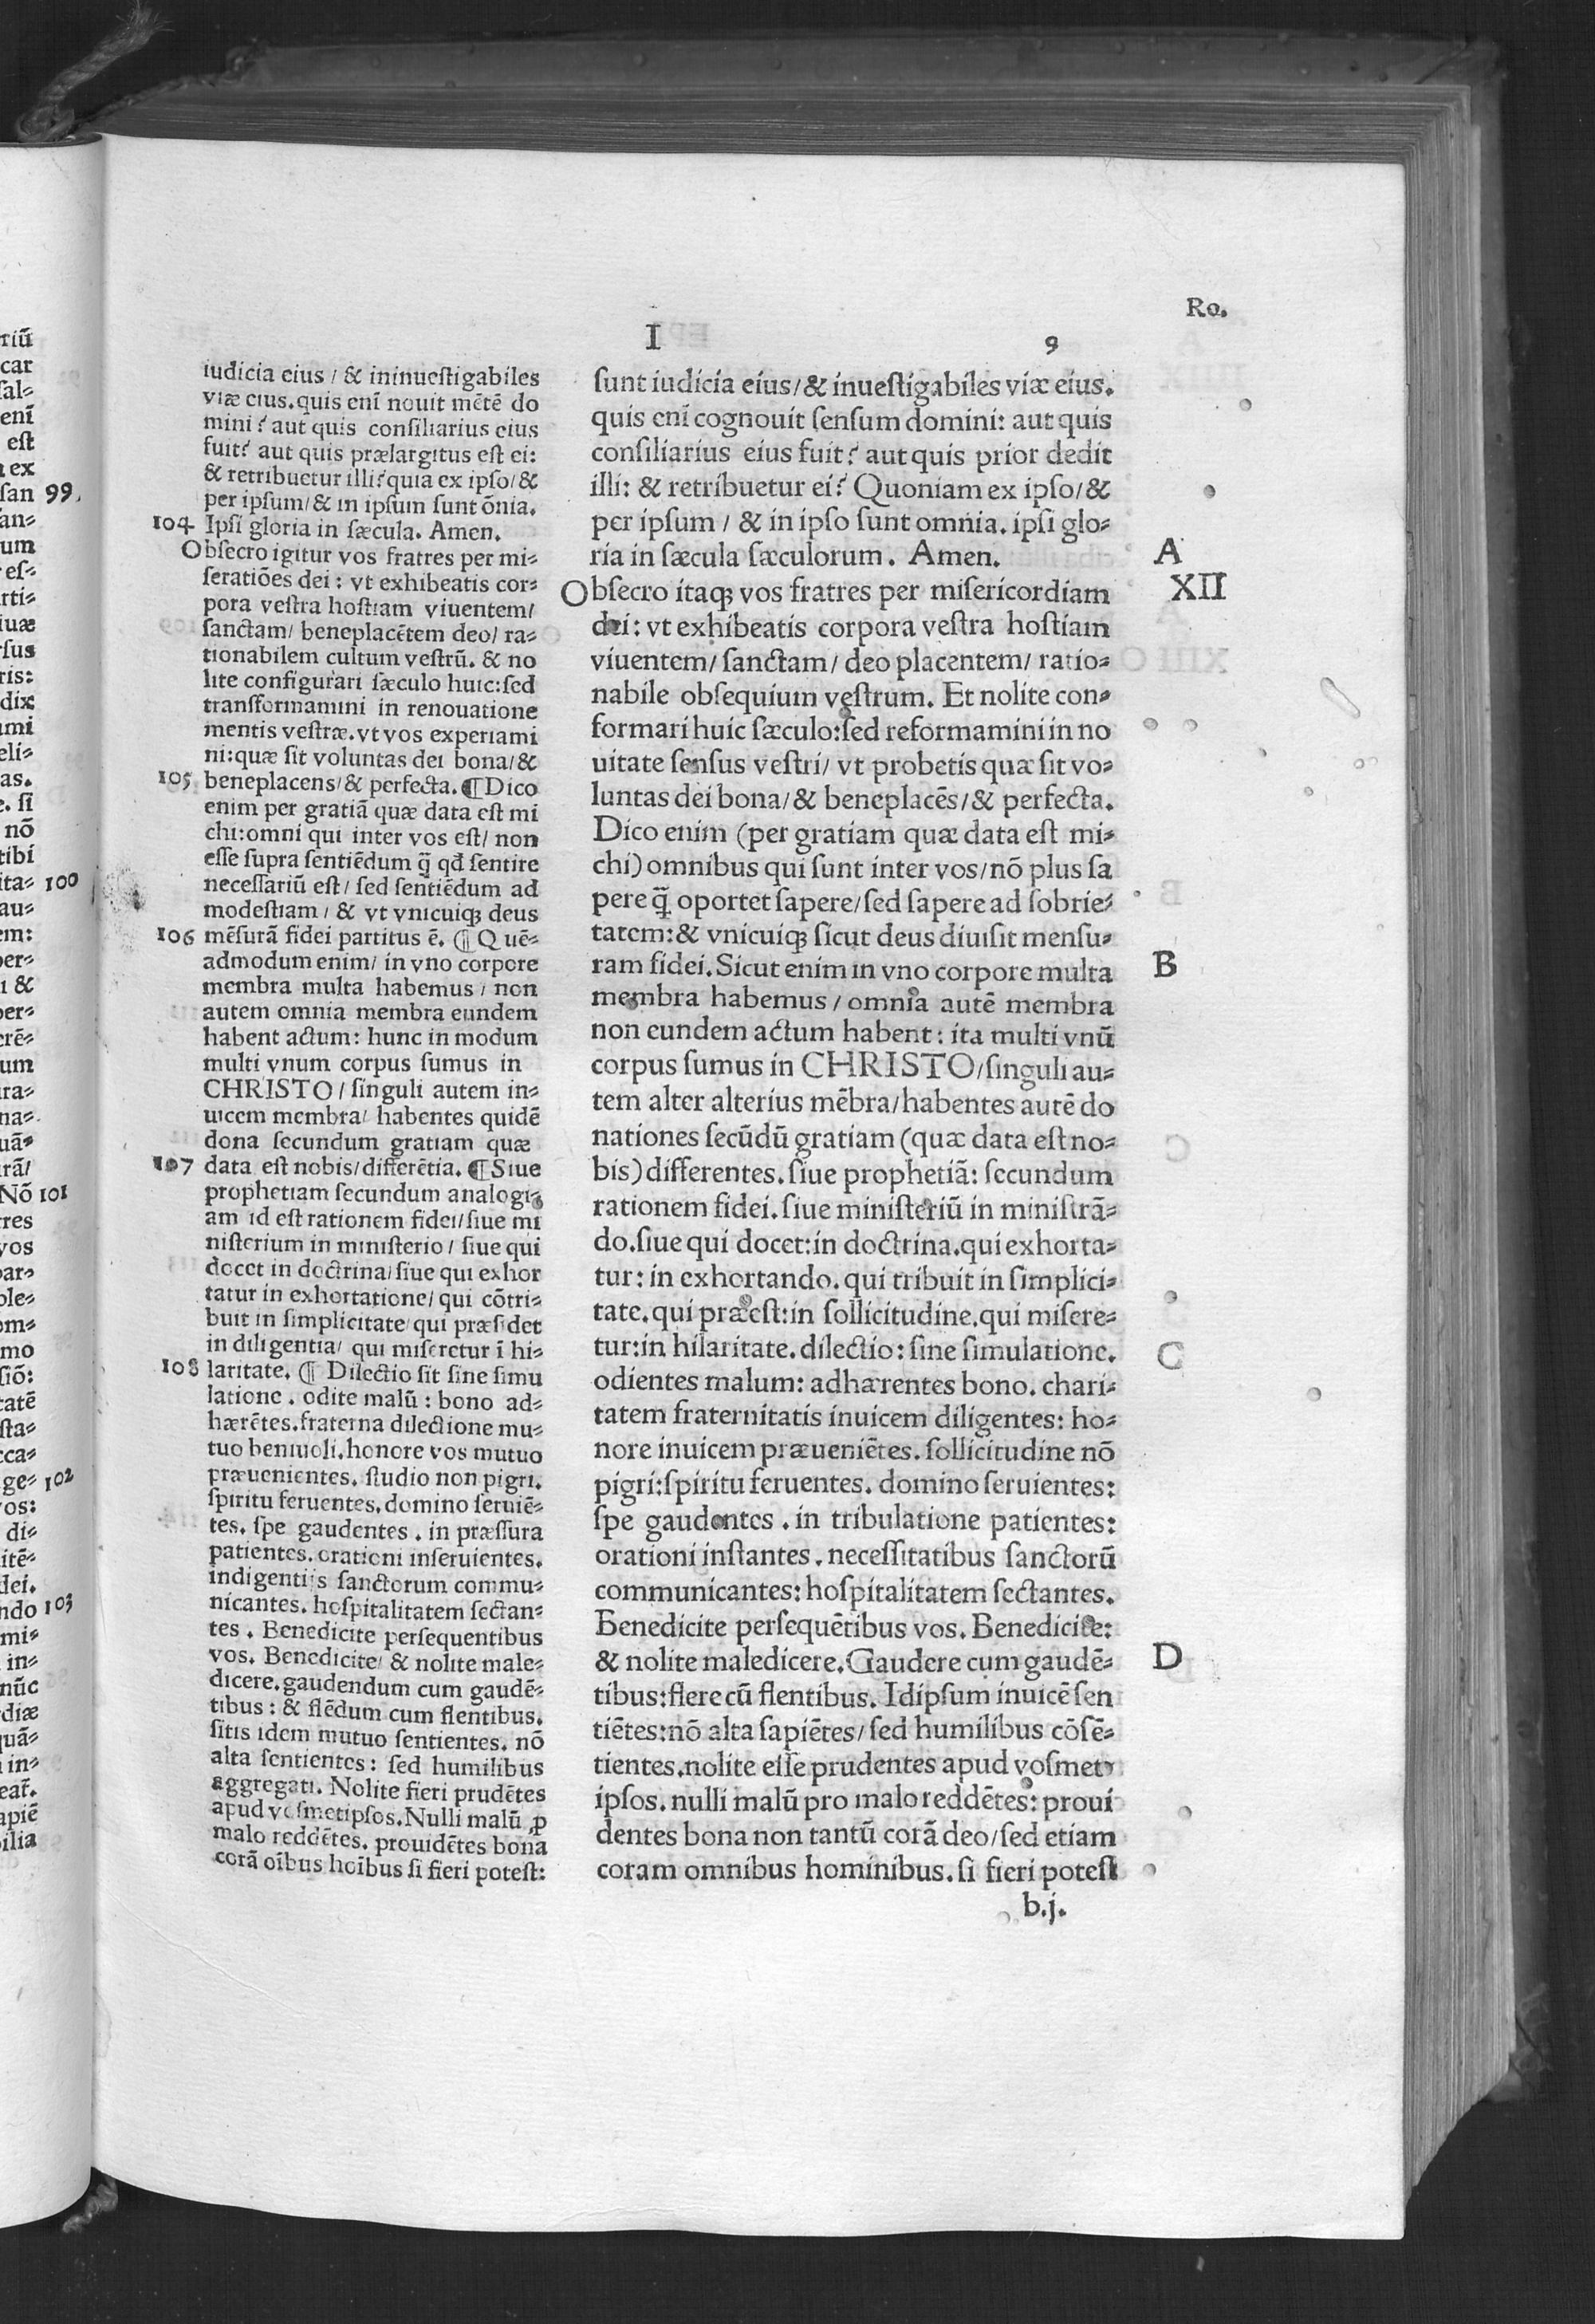 Ro.
I
9
iudicia eius / & ininuestigabiles
viæ eius. quis enĩ nouit mẽtẽ do
mini? aut quis consiliarius eius
fuit? aut quis prælargitus est ei:
& retribuetur illi? quia ex ipso/ &
per ipsum/ & in ipsum sunt õnia.
104 Ipsi gloria in sæcula. Amen.
Obsecro igitur vos fratres per mi-
seratiões dei: vt exhibeatis cor-
pora vestra hostiam viuentem/
sanctam/ beneplacẽtem deo/ ra-
tionabilem cultum vestrũ. & no
lite configurari sæculo huic: sed
transformamini in renouatione
mentis vestræ. vt vos experiami
ni: quæ sit voluntas dei bona/ &
105 beneplacens/ & perfecta. ¶ Dico
enim per gratiã quæ data est mi
chi: omni qui inter vos est/ non
esse supra sentiẽdum q̃ qđ sentire
necessariũ est/ sed sentiẽdum ad
modestiam/ & vt vnicuiqꝫ deus
106 mẽsurã fidei partitus ẽ. ¶ Quẽ-
admodum enim/ in vno corpore
membra multa habemus/ non
autem omnia membra eundem
habent actum: hunc in modum
multi vnum corpus sumus in
CHRISTO/ singuli autem in-
uicem membra/ habentes quidẽ
dona secundum gratiam quæ
107 data est nobis/ differẽtia. ¶ Siue
prophetiam secundum analogi-
am id est rationem fidei/ siue mi
nisterium in ministerio/ siue qui
docet in doctrina/ siue qui exhor
tatur in exhortatione/ qui cõtri-
buit in simplicitate/ qui præsidet
in diligentia/ qui miseretur ĩ hi-
108 laritate. ¶ Dilectio sit sine simu
latione. odite malũ: bono ad-
hærẽtes. fraterna dilectione mu-
tuo beniuoli. honore vos mutuo
præuenientes. studio non pigri.
spiritu feruentes. domino seruiẽ-
tes. spe gaudentes. in præssura
patientes. orationi inseruientes.
indigentijs sanctorum commu-
nicantes. hospitalitatem sectan-
tes. Benedicite persequentibus
vos. Benedicite/ & nolite male-
dicere. gaudendum cum gaudẽ-
tibus: & flẽdum cum flentibus.
sitis idem mutuo sentientes. nõ
alta sentientes: sed humilibus
aggregati. Nolite fieri prudẽtes
apud vosmetipsos. Nulli malũ ꝓ
malo reddẽtes. prouidẽtes bona
corã oĩbus hoĩbus si fieri potest:
sunt iudicia eius/ & inuestigabiles viæ eius.
quis enĩ cognouit sensum domini: aut quis
consiliarius eius fuit? aut quis prior dedit
illi: & retribuetur ei? Quoniam ex ipso/ &
per ipsum / & in ipso sunt omnia. ipsi glo-
ria in sæcula sæculorum. Amen.
A
XII
Obsecro itaqꝫ vos fratres per misericordiam
dei: vt exhibeatis corpora vestra hostiam
viuentem/ sanctam/ deo placentem/ ratio-
nabile obsequium vestrum. Et nolite con-
formari huic sæculo: sed reformamini in no
uitate sensus vestri/ vt probetis quæ sit vo-
luntas dei bona/ & beneplacẽs/ & perfecta.
Dico enim (per gratiam quæ data est mi-
chi) omnibus qui sunt inter vos/ nõ plus sa
pere q̃ oportet sapere/ sed sapere ad sobrie-
tatem: & vnicuiqꝫ sicut deus diuisit mensu-
ram fidei. Sicut enim in vno corpore multa
B
membra habemus/ omnia autẽ membra
non eundem actum habent: ita multi vnũ
corpus sumus in CHRISTO/ singuli au-
tem alter alterius mẽbra/ habentes autẽ do
nationes secũdũ gratiam (quæ data est no-
bis) differentes. siue prophetiã: secundum
rationem fidei. siue ministeriũ in ministrã-
do. siue qui docet: in doctrina. qui exhorta-
tur: in exhortando. qui tribuit in simplici-
tate. qui præest: in sollicitudine. qui misere-
tur: in hilaritate. dilectio: sine simulatione.
C
odientes malum: adhærentes bono. chari-
tatem fraternitatis inuicem diligentes: ho-
nore inuicem præueniẽtes. sollicitudine nõ
pigri: spiritu feruentes. domino seruientes:
spe gaudentes. in tribulatione patientes:
orationi instantes. necessitatibus sanctorũ
communicantes: hospitalitatem sectantes.
Benedicite persequẽtibus vos. Benedicite:
& nolite maledicere. Gaudere cum gaudẽ-
D
tibus: flere cũ flentibus. Idipsum inuicẽ sen
tiẽtes: nõ alta sapiẽtes/ sed humilibus cõsẽ-
tientes. nolite esse prudentes apud vosmet-
ipsos. nulli malũ pro malo reddẽtes: proui
dentes bona non tantũ corã deo/ sed etiam
coram omnibus hominibus. si fieri potest
b.j.
99
100
101
102
103